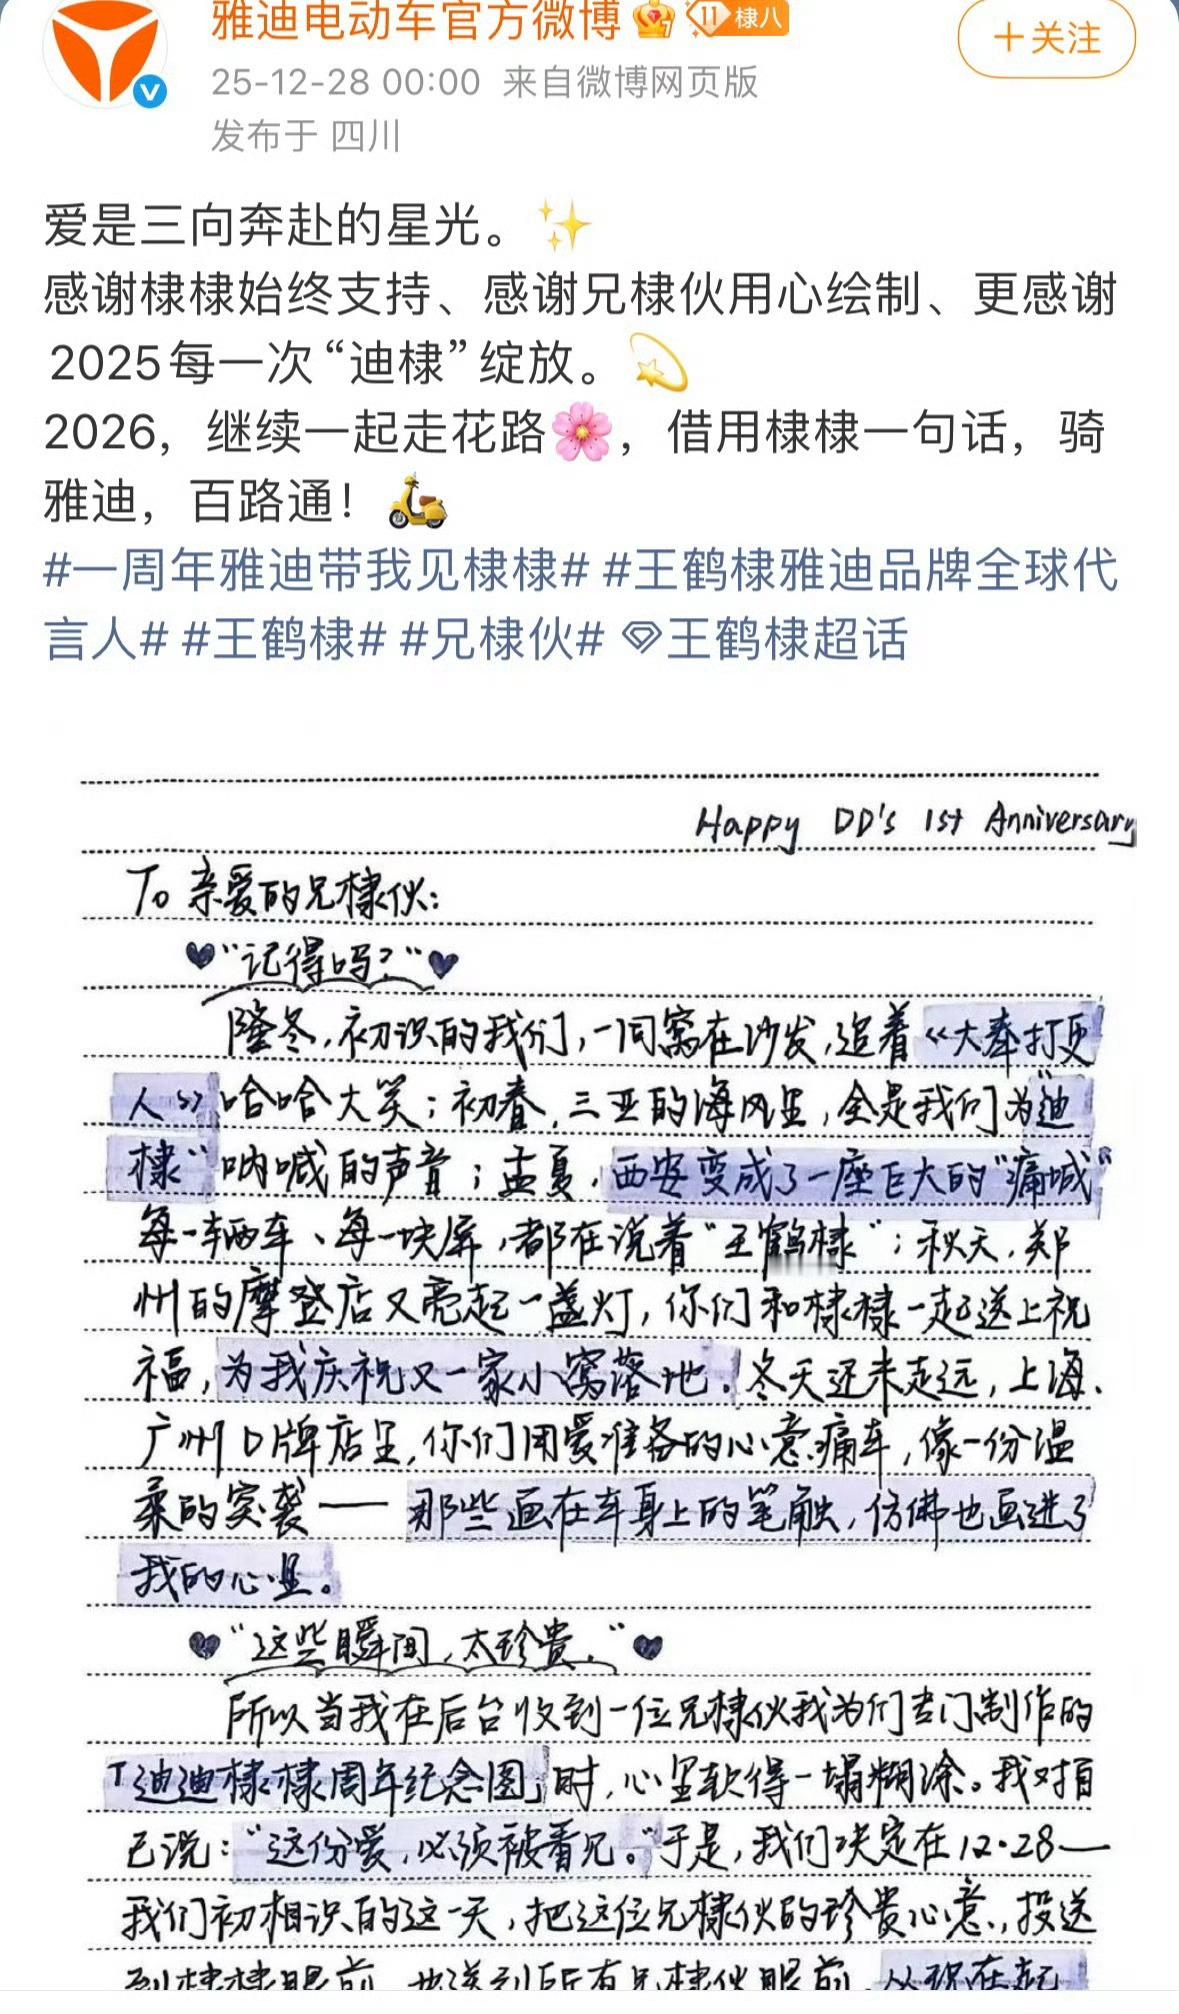 雅迪电动车官方微博
11 棣八
+关注
25-12-28 00:00 来自微博网页版
发布于 四川
爱是三向奔赴的星光。✨
感谢棣棣始终支持、感谢兄棣伙用心绘制、更感谢
2025每一次“迪棣”绽放。💫
2026，继续一起走花路🌸，借用棣棣一句话，骑
雅迪，百路通！🛵
#一周年雅迪带我见棣棣# #王鹤棣雅迪品牌全球代
言人# #王鹤棣# #兄棣伙# 王鹤棣超话
Happy DD's 1st Anniversary
To 亲爱的兄棣伙：
♥“记得吗？”♥
隆冬，初识的我们，一同窝在沙发，追着《大奉打更
人》哈哈大笑；初春，三亚的海风里，全是我们为“迪
棣”呐喊的声音；孟夏，西安变成了一座巨大的“痛城”
每一辆车、每一块屏，都在说着“王鹤棣”；秋天，郑
州的摩登店又亮起一盏灯，你们和棣棣一起送上祝
福，为我庆祝又一家小窝落地。冬天还未走远，上海、
广州D牌店里，你们用爱准备的心意痛车，像一份温
柔的突袭——那些画在车身上的笔触，仿佛也画进了
我的心里。
♥“这些瞬间，太珍贵。”♥
所以当我在后台收到一位兄棣伙我为们专门制作的
「迪迪棣棣周年纪念图」时，心里软得一塌糊涂。我对自
己说：“这份爱，必须被看见。”于是，我们决定在12·28—
我们初相识的这一天，把这位兄棣伙的珍贵心意，投送
到棣棣眼前，也送到所有兄棣伙眼前，从现在起